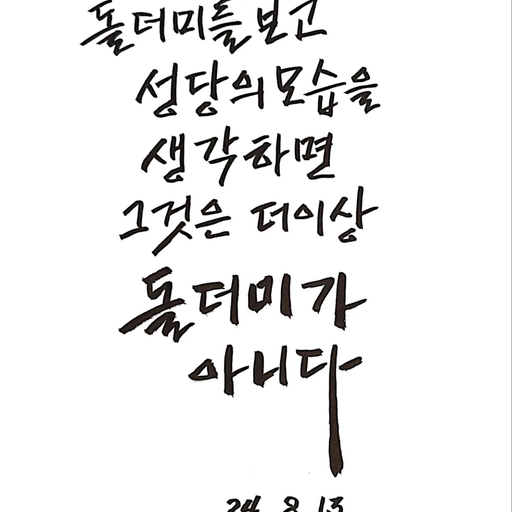 돌더미를 보고
성당의 모습을
생각하면
그것은 더이상
돌더미가
아니다
24. 8. 13